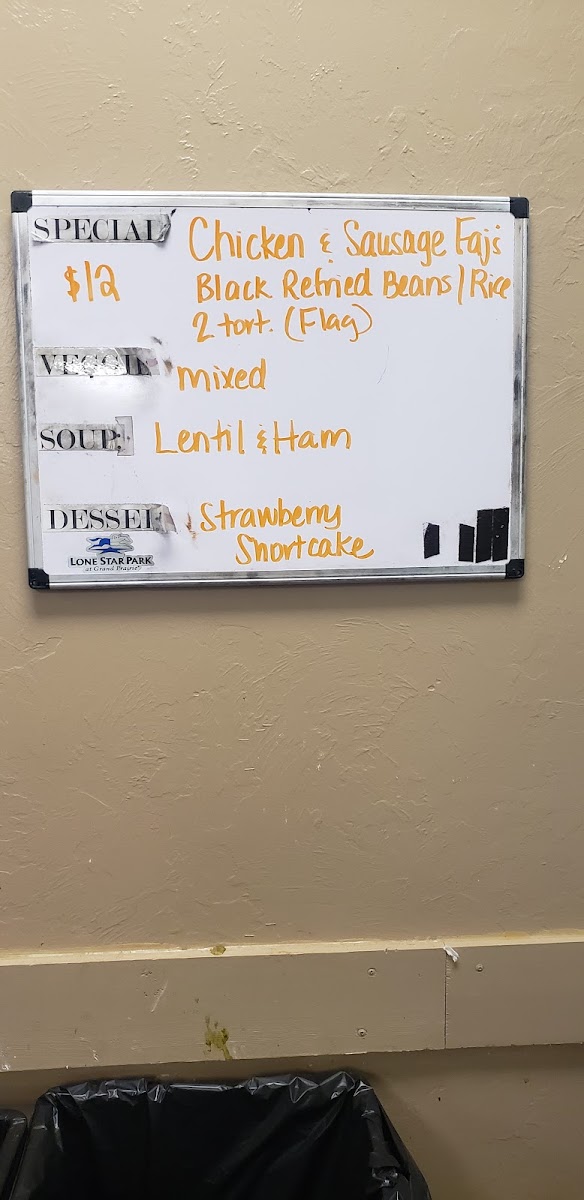 SPECIAL Chicken & Sausage Fajs
$12 Black Refried Beans / Rice
2 tort. (Flag)
VEGGIE mixed
SOUP: Lentil & Ham
DESSERT Strawberry
Shortcake
LONE STAR PARK
at Grand Prairie